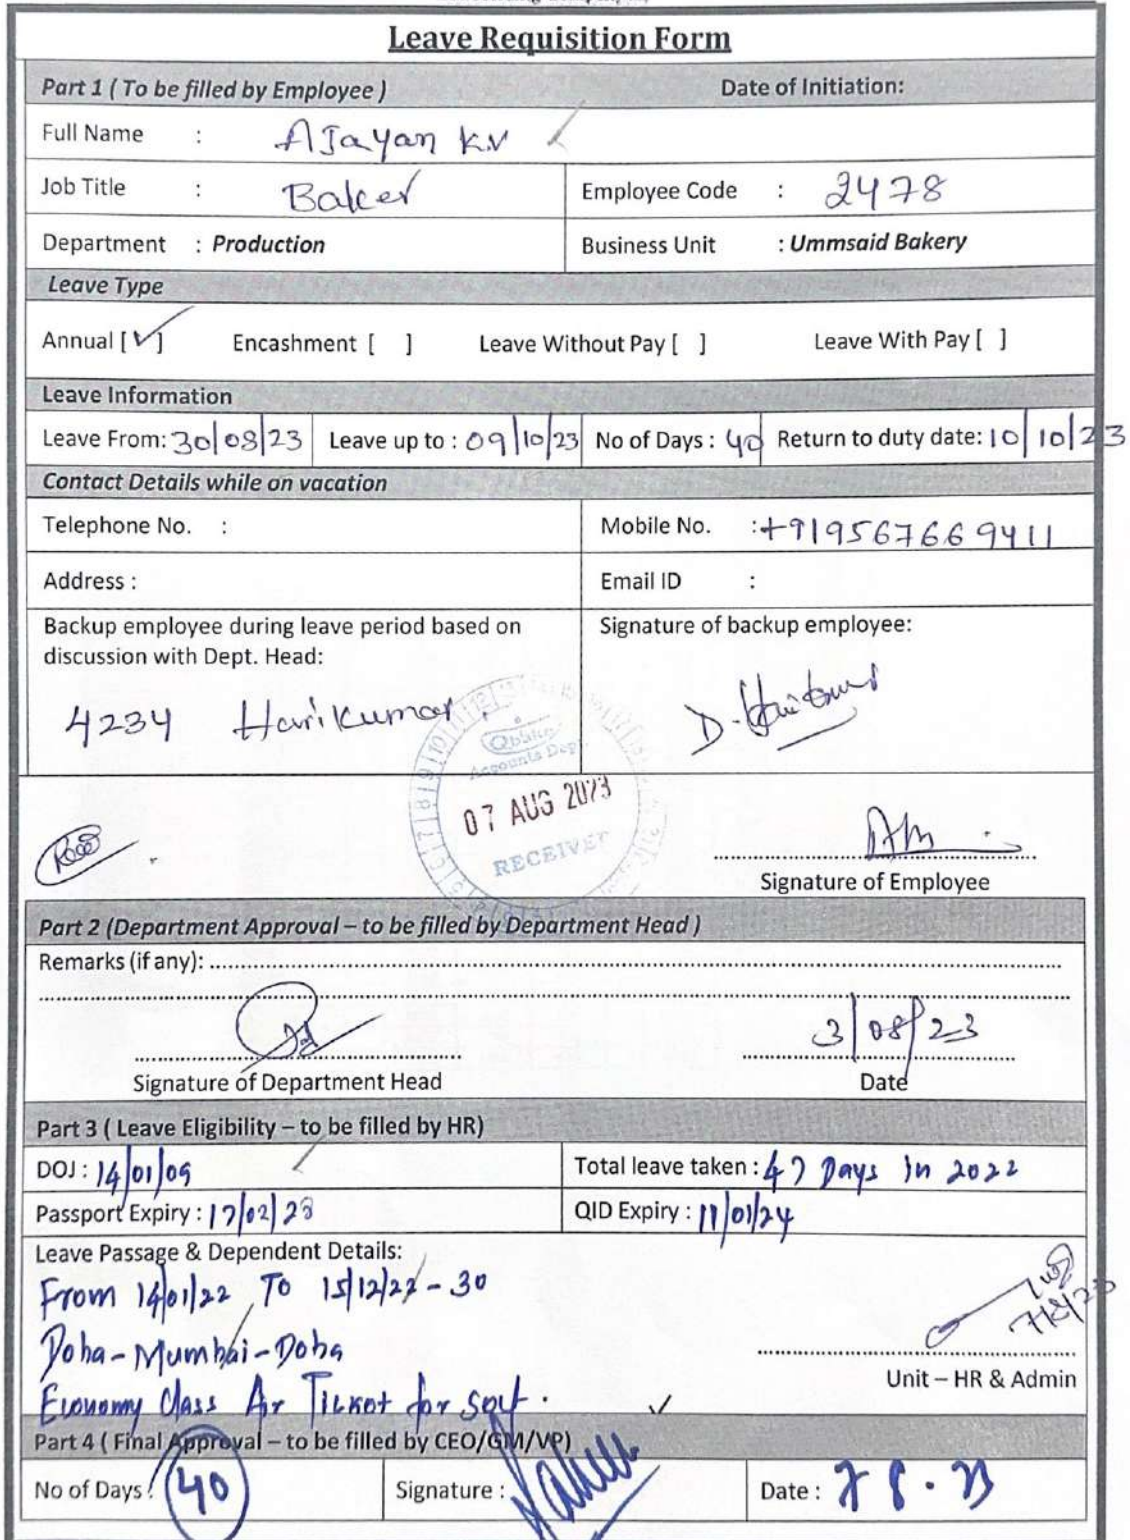 Leave Requisition Form
Part 1 ( To be filled by Employee ) Date of Initiation:
Full Name : AJayan K.V
Job Title : Baker Employee Code : 2478
Department : Production Business Unit : Ummsaid Bakery
Leave Type
Annual [✓] Encashment [ ] Leave Without Pay [ ] Leave With Pay [ ]
Leave Information
Leave From: 30/08/23 Leave up to : 09/10/23 No of Days : 40 Return to duty date: 10/10/23
Contact Details while on vacation
Telephone No. : Mobile No. :+919567669411
Address : Email ID :
Backup employee during leave period based on Signature of backup employee:
discussion with Dept. Head:
4234 Harikumar
Accounts Dep
07 AUG 2023
RECEIVED
Signature of Employee
Part 2 (Department Approval – to be filled by Department Head )
Remarks (if any):
3/08/23
Signature of Department Head Date
Part 3 ( Leave Eligibility – to be filled by HR)
DOJ : 14/01/09 Total leave taken : 47 Days in 2022
Passport Expiry : 17/02/28 QID Expiry : 11/01/24
Leave Passage & Dependent Details:
From 14/01/22 To 15/12/22 - 30
Doha - Mumbai - Doha
7/8/23
Unit – HR & Admin
Economy Class Air Ticket for self.
Part 4 ( Final Approval – to be filled by CEO/GM/VP)
No of Days : 40 Signature : Date : 7 8 . 23